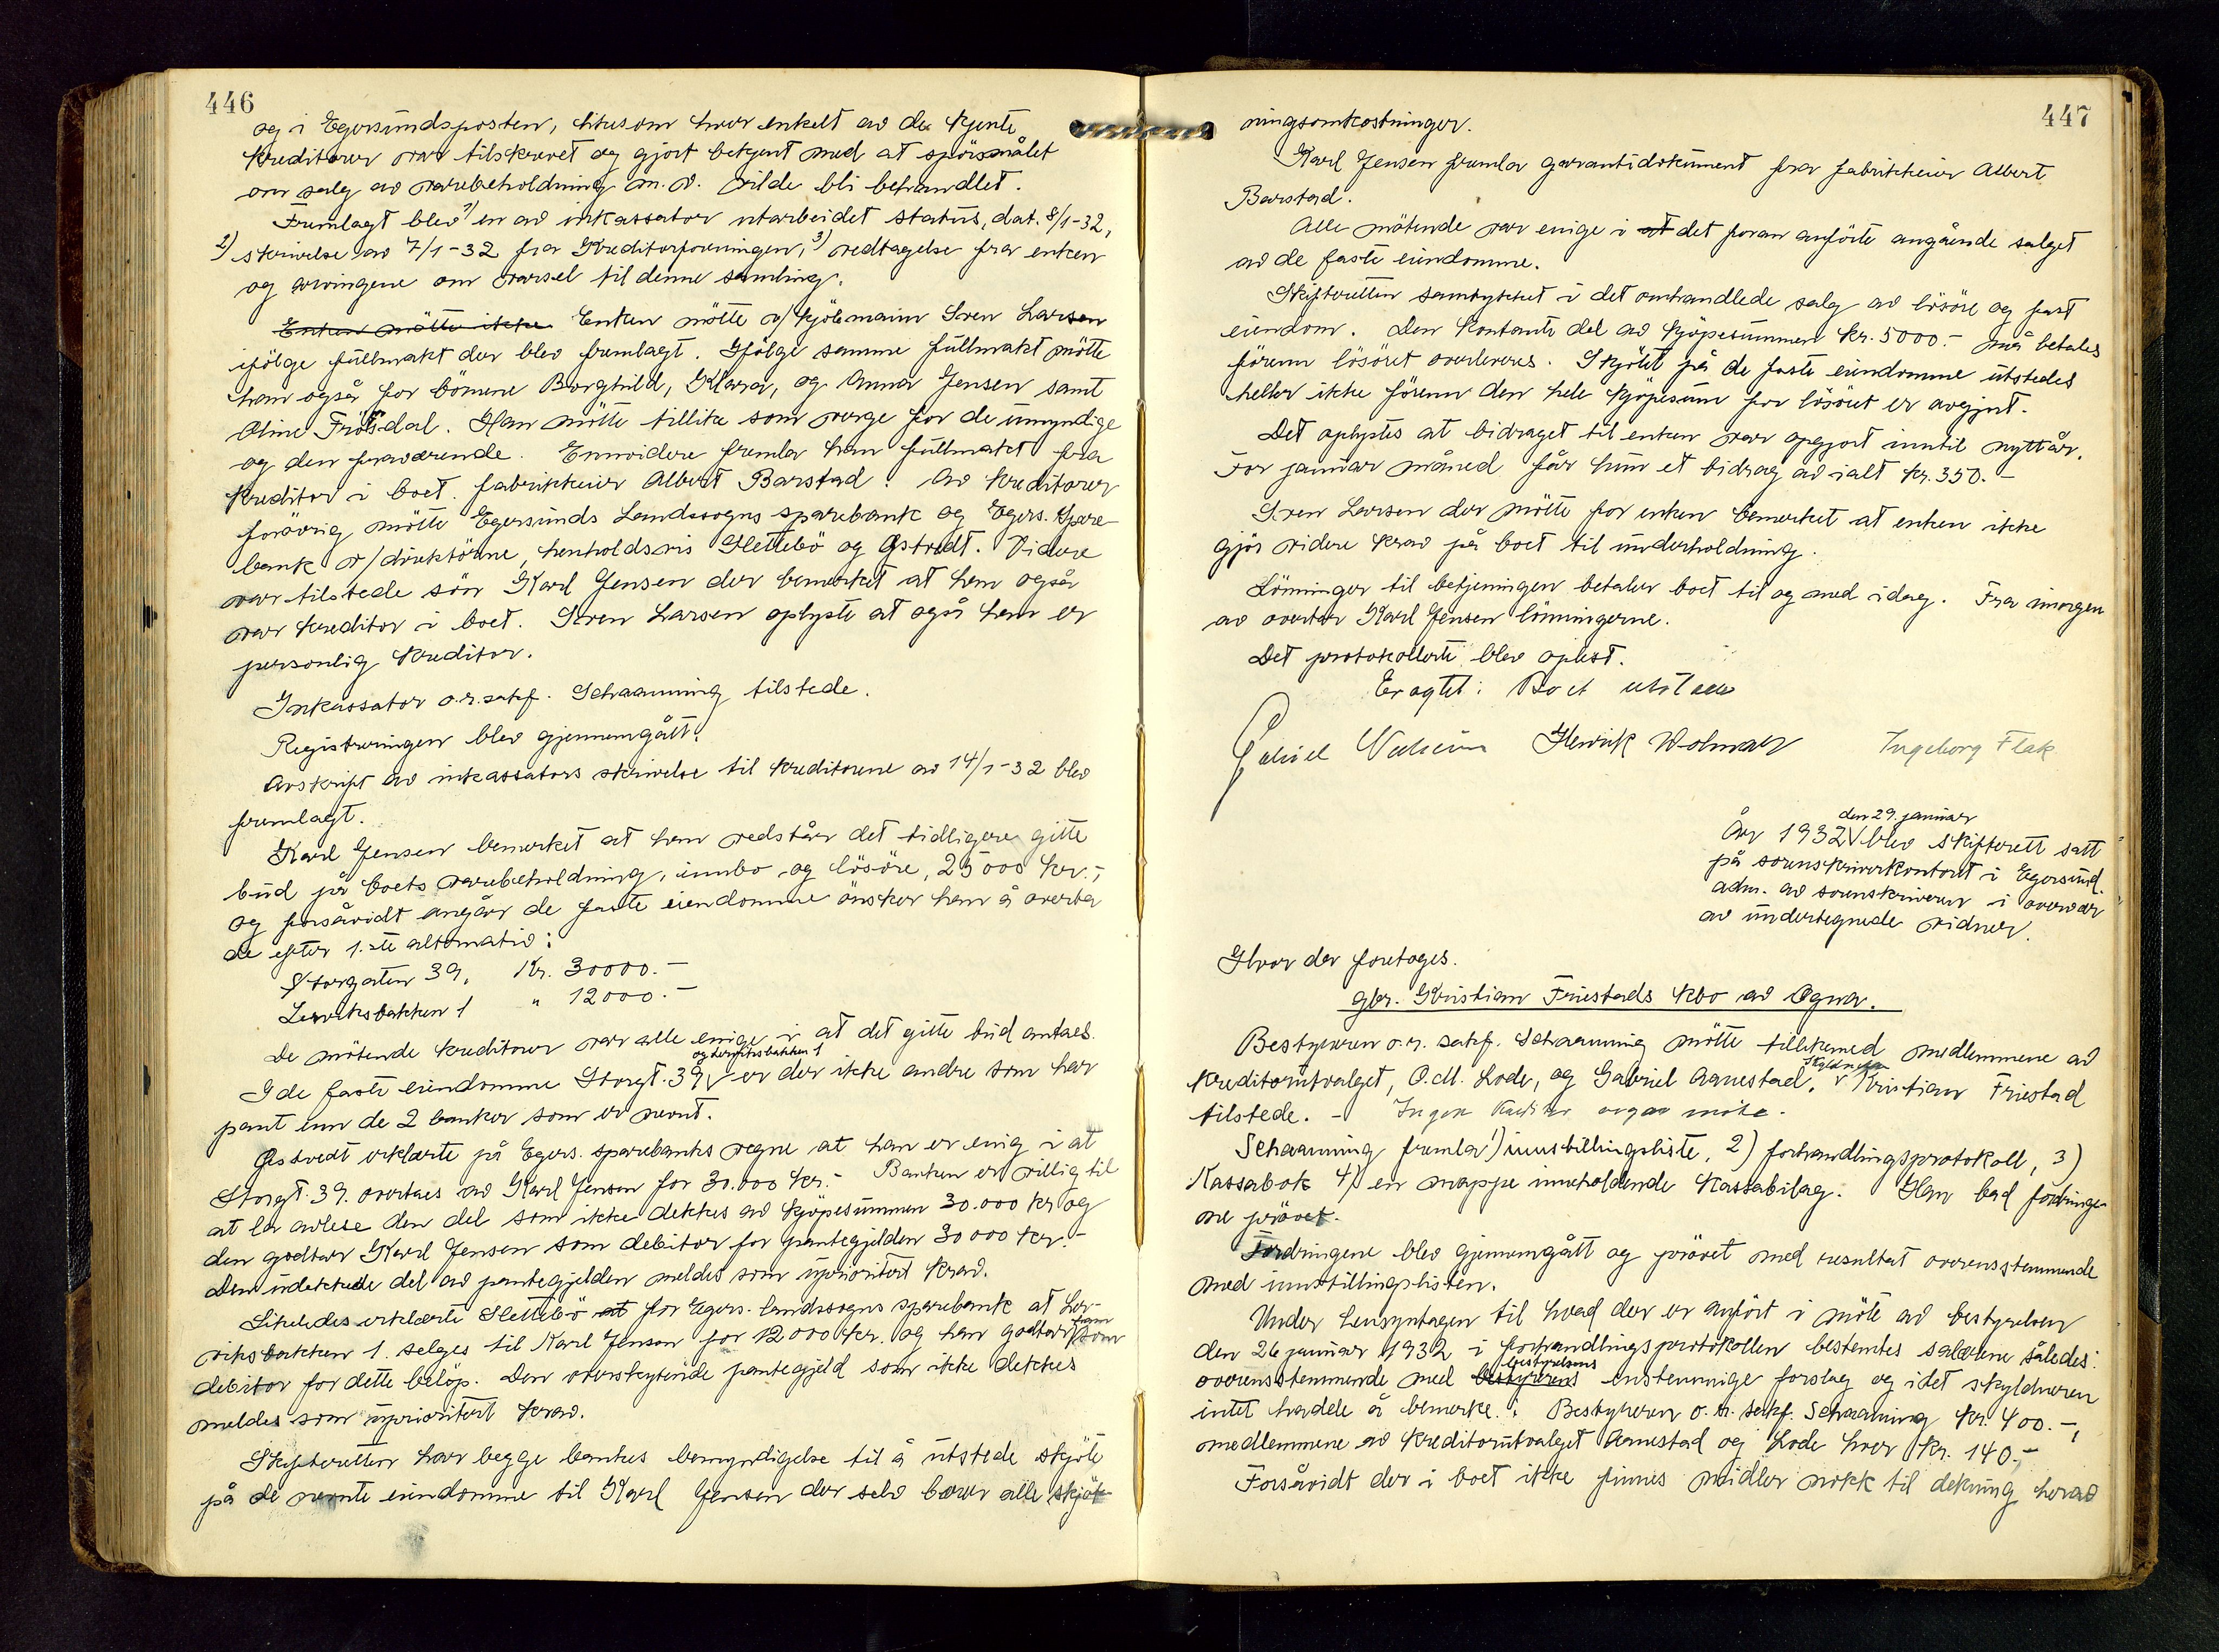 446
og i Egersundsposten, likesom hver enkelt av de kjente
kreditorer var tilskrevet og gjort bekjent med at spörsmålet
om salg av varebeholdning m.v. vilde bli behandlet.
Fremlagt blev 1) en av inkassator utarbeidet status, dat. 8/1-32,
2) skrivelse av 7/1-32 fra Kreditorforeningen, 3) vedtagelse fra enken
og arvingene om varsel til denne samling.
Enken mötte ikke Enken mötte v/ kjöbmann Sven Larsen
ifölge fullmakt der blev fremlagt. Ifölge samme fullmakt mötte
han også for börnene Borghild, Klara, og Anna Jensen samt
Oline Fröisdal. Han mötte tillike som verge for de umyndige
og den fraværende. Ennvidere fremla han fullmakt fra
kreditor i boet. fabrikkeier Albert Barstad. Av kreditorer
forövrig mötte Egersunds Landssogns sparebank og Egers. Spare-
bank v/direktörene, henholdsvis Slettebö og Gstvedt. Videre
var tilstede sön Karl Jensen der bemerket at han også
var kreditor i boet. Sven Larsen oplyste at også han er
personlig kreditor.
Inkassator o.r.sakf. Schaanning tilstede.
Registreringen blev gjennemgått.
Avskrift av inkassators skrivelse til kreditorene av 14/1-32 blev
fremlagt.
Karl Jensen bemerket at han vedstår det tidligere gitte
bud på boets varebeholdning, innbo og lösöre, 25000 kr.-,
og forsåvidt angår de faste eiendomme önsker han å overta
de efter 1.ste alternativ:
Storgaten 39, Kr. 30000.-
Lerviksbakken 1 " 12000.-
De mötende kreditorer var alle enige i at det gitte bud antaes.
og Lerviksbakken 1
I de faste eiendomme Storgt. 39 V er der ikke andre som har
pant enn de 2 banker som er nevnt.
Gstvedt erklærte på Egers. sparebanks vegne at han er enig i at
Storgt. 39. overtaes av Karl Jensen for 30.000 kr.- Banken er villig til
at la avlese den del som ikke dekkes av kjöpesummen 30.000 kr og
den godtar Karl Jensen som debitor for pantegjelden 30000 kr.-
Den udekkede del av pantegjelden meldes som uprioritert krav.
Likeledes erklærte Slettebö at for Egers. landssogns sparebank at Ler-
viksbakken 1. selges til Karl Jensen for 12000 kr. og han godtar ham som
debitor for dette belöp. Den overskytende pantegjeld som ikke dekkes
meldes som uprioritert krav.
Skifteretten har begge bankers bemyndigelse til å utstede skjöte
på de nevnte eiendomme til Karl Jensen der selv bærer alle skjöt-
447
ningsomkostninger.
Karl Jensen fremla garantidokument fra fabrikkeier Albert
Barstad.
Alle mötende var enige i at det foran anförte angående salget
av de faste eiendomme.
Skifteretten samtykket i det omhandlede salg av lösöre og fast
eiendom. Den kontante del av kjöpesummen kr. 5000.- må betales
förenn lösöret overleveres. Skjöte på de faste eiendomme utstedes
heller ikke förenn den hele kjöpesum for lösöret er avgjort.
Det oplystes at bidraget til enken var opgjort inntil nyttår.
For januar måned får hun et bidrag av ialt kr. 350.-
Sven Larsen der mötte for enken bemerket at enken ikke
gjör videre krav på boet til underholdning.
Lönninger til betjeningen betaler boet til og med idag. Fra imorgen
av overtar Karl Jensen lönningerne.
Det protokollerte blev oplest.
Eragtet: Boet utstaar
Gabriel Henrik Ingeborg Flak
den 29. januar
År 1932 V blev skifterett satt
på sorenskriverkontoret i Egersund.
adm. av sorenskriveren i overvær
av undertegnede vidner.
Hvor der foretoges.
gbr. Kristian Friestads kbo av Ogna.
Bestyreren o.r. sakf. Schaanning mötte tillikemed medlemmene av
Skyldneren
kreditorutvalget, O.M. Lode, og Gabriel Aanestad. V Kristian Friestad
tilstede. - Ingen kreditor avgav möte.
Schaanning fremla 1) innstillingsliste, 2) forhandlingsprotokoll, 3)
Kassabok 4) en mappe inneholdende kassabilag. Han bad fordringe-
ne prövet.
Fordringene blev gjennemgått og prövet med resultat overensstemmende
med innstillingslisten.
Under hensyntagen til hvad der er anfört i möte av bestyrelsen
den 26 januar 1932 i forhandlingsprotokollen bestemtes salærene således:
bestyrelsens
overensstemmende med bestyrerens enstemmige forslag og idet skyldneren
intet hadde å bemerke: Bestyreren o.r. sakf. Schaanning kr. 400.-,
medlemmene av kreditorutvalget Aanestad og Lode hver kr. 140.-
Forsåvidt der i boet ikke finnes midler nokk til dekning herav